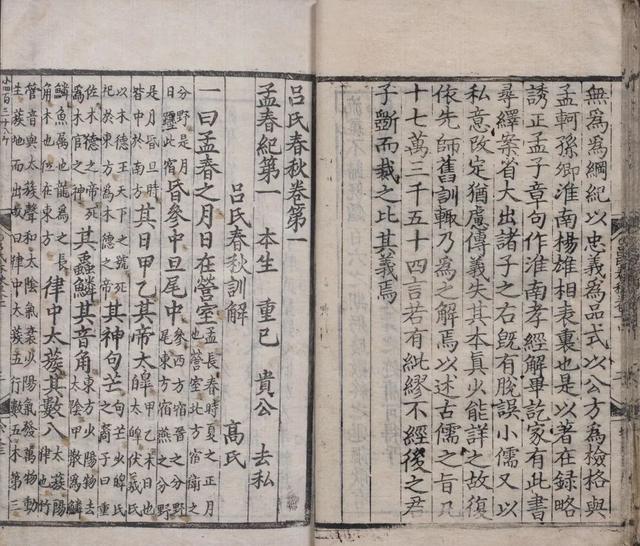 無爲爲綱紀以忠義爲品式以公方爲檢格與
孟軻孫卿淮南楊雄相表裏也是以著在録略
誘正孟子章句作淮南孝經解畢訖家有此書
尋繹案省大出諸子之右旣有脫誤小儒又以
私意改定猶慮傳義失其本眞少能詳之故復
依先師舊訓輒乃爲之解焉以述古儒之旨凡
十七萬三千五十四言若有紕繆不經後之君
子斷而裁之比其義焉
呂氏春秋卷第一
孟春紀第一 本生 重己 貴公 去私
呂氏春秋訓解 高氏
一曰孟春之月日在營室孟長春時夏之正月也營室北方宿衛之
分野是月日躔此宿昏參中旦尾中參西方宿晉之分野尾東方宿燕之分野
是月昏旦時皆中於南方其日甲乙其帝太皥甲乙木日也太皥伏羲氏
以木德王天下之號死祀於東方爲木德之帝其神句芒句芒少皥氏之裔子曰重
佐木德之帝死爲木官之神其蟲鱗其音角東方少陽物去太陰甲散爲鱗
鱗魚屬也龍爲之長角木也位在東方律中太蔟其數八太蔟陽律也竹
管音與太蔟聲和太陰氣衰少陽氣發萬物動生蔟地而出故曰律中太蔟五行數五木第三